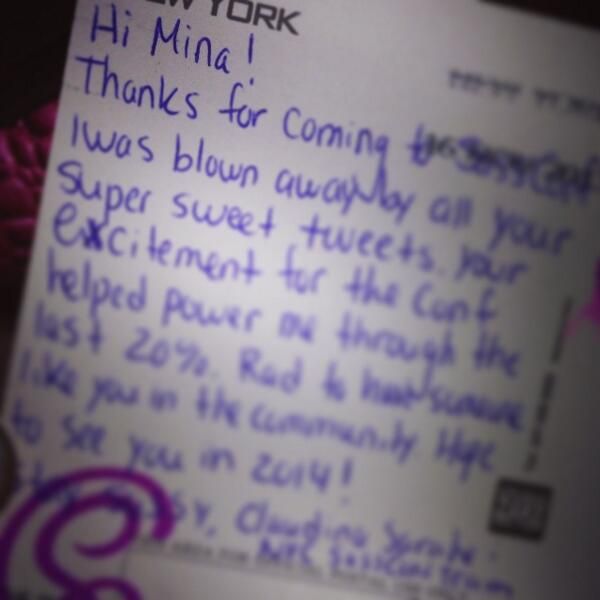 NEW YORK
Hi Mina!
Thanks for coming to SassConf
I was blown away by all your
super sweet tweets. Your
excitement for the conf
helped power me through the
last 20%. Rad to have someone
like you in the community. Hope
to see you in 2014!
Stay Sassy, Claudina Sarahe -
SassConf team